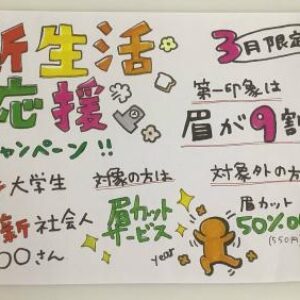 新生活
3月限定
応援
キャンペーン!!
第一印象は
眉が9割
大学生
新社会人
○○さん
対象の方は
眉カット
サービス
year
対象外の方
眉カット
50%O
(550円